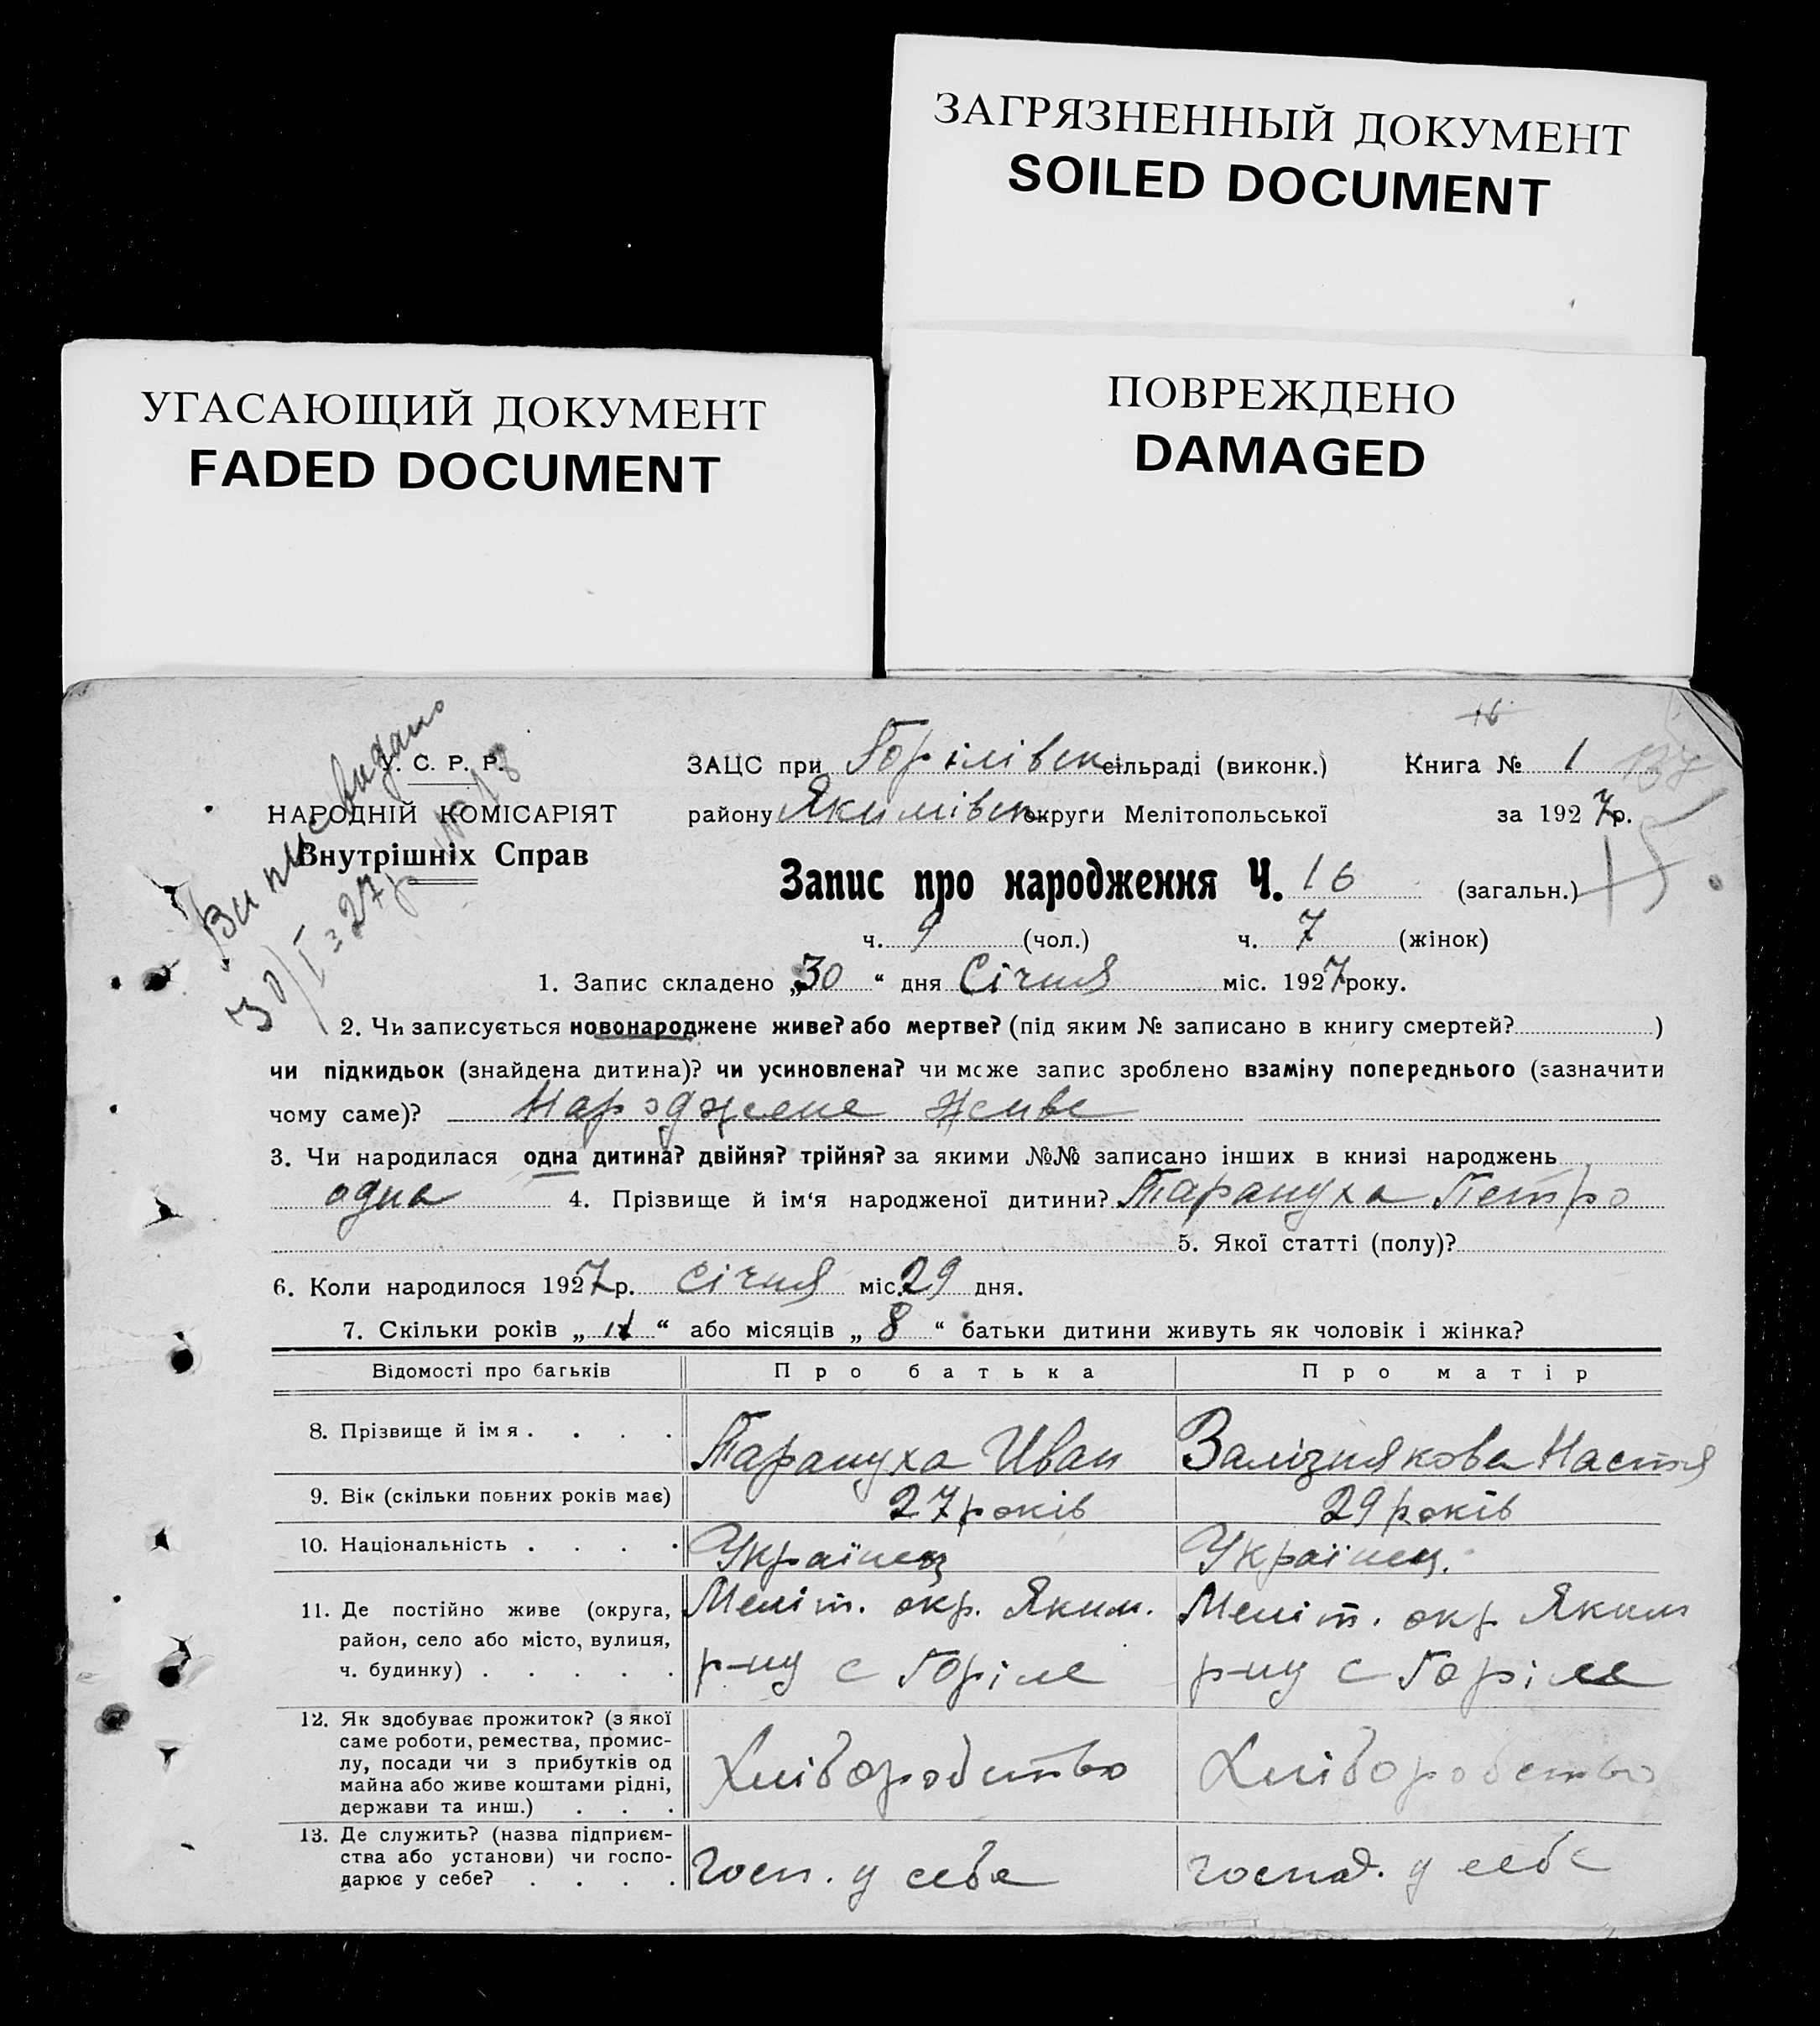 ЗАГРЯЗНЕННЫЙ ДОКУМЕНТ
SOILED DOCUMENT
УГАСАЮЩИЙ ДОКУМЕНТ
FADED DOCUMENT
ПОВРЕЖДЕНО
DAMAGED
16
Випис видано
30/I 27р № 18
У. С. Р. Р.
НАРОДНІЙ КОМІСАРІЯТ
Внутрішніх Справ
ЗАЦС при Горілівск сільраді (виконк.) Книга № 1
району Якимівск округи Мелітопольської за 1927р.
15
Запис про народження Ч. 16 (загальн.)
ч. 9 (чол.) ч. 7 (жінок)
1. Запис складено „30“ дня Січня міс. 1927 року.
2. Чи записується новонароджене живе? або мертве? (під яким № записано в книгу смертей? )
чи підкидьок (знайдена дитина)? чи усиновлена? чи може запис зроблено взаміну попереднього (зазначити
чому саме)? Народжене живе
3. Чи народилася одна дитина? двійня? трійня? за якими №№ записано інших в книзі народжень
одна 4. Прізвище й ім‘я народженої дитини? Тарануха Петро
5. Якої статті (полу)?
6. Коли народилося 1927р. Січня міс. 29 дня.
7. Скільки років „ “ або місяців „ 8 “ батьки дитини живуть як чоловік і жінка?
Відомості про батьків Про батька Про матір
8. Прізвище й імя . . . . Тарануха Иван Залізнякова Настя
9. Вік (скільки повних років має) 27 років 29 років
10. Національність . . . . Українец Українец.
11. Де постійно живе (округа, Меліт. окр. Яким. Меліт. окр Яким
район, село або місто, вулиця,
ч. будинку) . . . . . р-ну с Горіле р-ну с Горіле
12. Як здобуває прожиток? (з якої
саме роботи, ремества, промис-
лу, посади чи з прибутків од Хліборобство Хліборобство
майна або живе коштами рідні,
держави та инш.) . . .
13. Де служить? (назва підприєм-
ства або установи) чи госпо- Госп. у себе господ. у себе
дарює у себе? . . . .